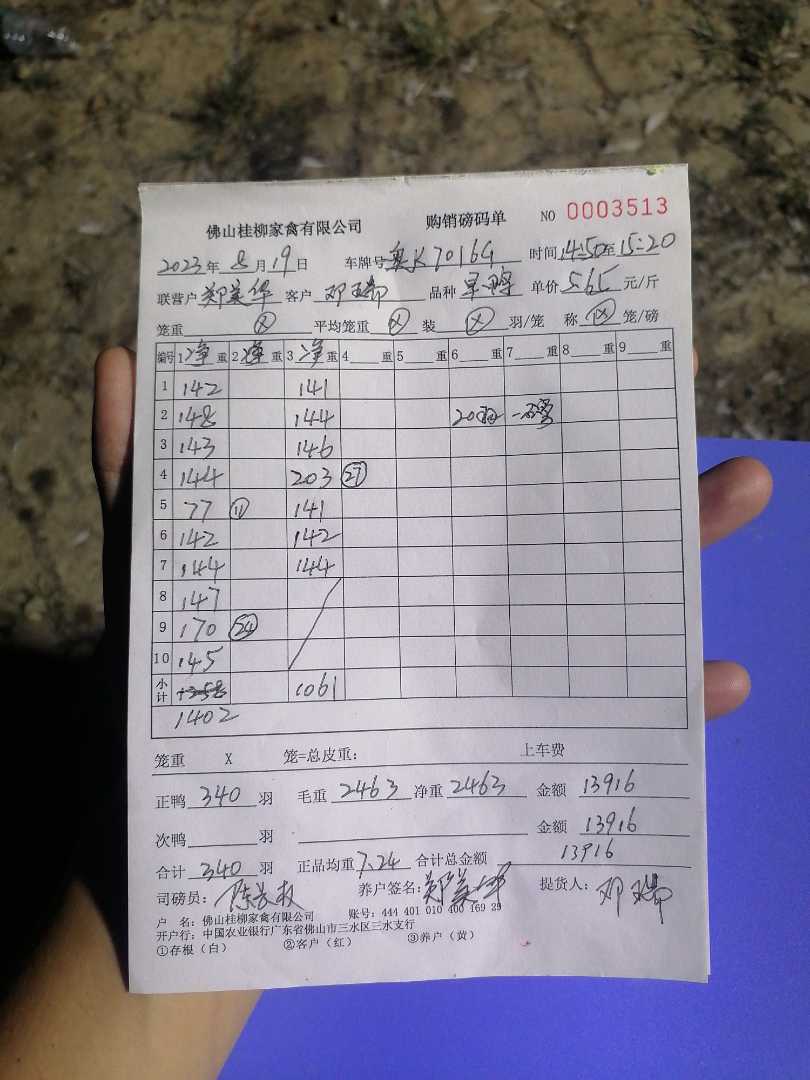 佛山桂柳家禽有限公司 购销磅码单 NO 0003513
2023年8月19日 车牌号 粤K7016G 时间 14:50至15:20
联营户 郑美华 客户 邓瑞 品种 单价 5.65 元/斤
笼重 ⊗ 平均笼重 ⊗ 装 ⊗ 羽/笼 称 ⊗ 笼/磅
编号 1净重 2净重 3净重 4重 5重 6重 7重 8重 9重
1 142 141
2 148 144 20羽一磅
3 143 146
4 144 203 ㉗
5 77 ⑪ 141
6 142 142
7 144 144
8 147
9 170 ㉔
10 145
小计 1061
1402
笼重 X 笼=总皮重: 上车费
正鸭 340 羽 毛重 2463 净重 2463 金额 13916
次鸭 羽 金额 13916
合计 340 羽 正品均重 7.24 合计总金额 13916
司磅员: 养户签名: 郑美华 提货人: 邓瑞
户 名: 佛山桂柳家禽有限公司 账号: 444 401 010 400 169 29
开户行: 中国农业银行广东省佛山市三水区三水支行
①存根(白) ②客户(红) ③养户(黄)